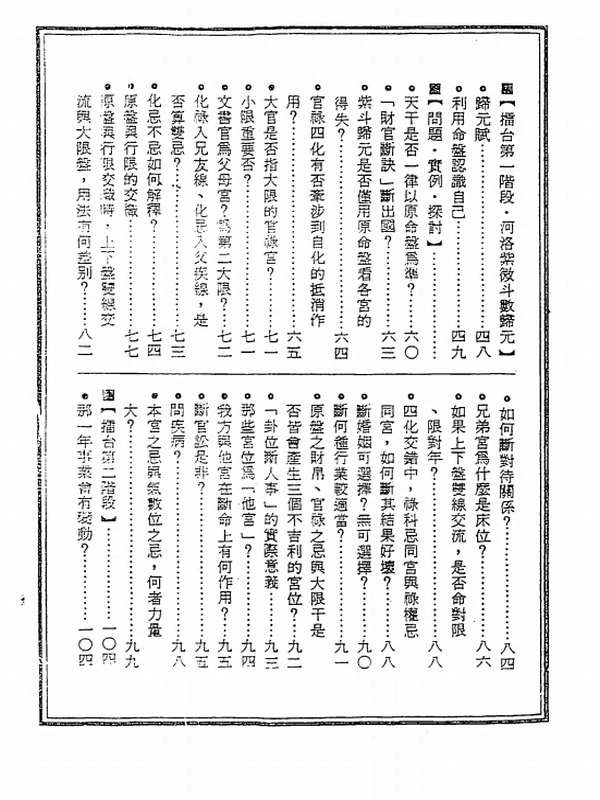 圖【擂台第一階段·河洛紫微斗數歸元】
•歸元賦…………四八
•利用命盤認識自己…………四九
圖【問題·實例·探討】…………
•天干是否一律以原命盤爲準？…………六〇
•「財官斷訣」斷出國？…………六三
•紫斗歸元是否僅用原命盤看各宮的
得失？…………六四
•官祿四化有否牽涉到自化的抵消作
用？…………六五
•大官是否指大限的官祿宮？…………七一
•小限重要否？…………七一
•文書官爲父母宮？爲第二大限？…………七二
•化祿入兄友線、化忌入父疾線，是
否算雙忌？…………七三
•化忌不忌如何解釋？…………七四
•原盤與行限的交織…………七七
•原盤與行限交織時，上下盤雙線交
流與大限盤，用法有何差別？…………八二
•如何斷對待關係？…………八四
•兄弟宮爲什麼是床位？…………八六
•如果上下盤雙線交流，是否命對限
、限對年？…………八八
•四化交錯中，祿科忌同宮與祿權忌
同宮，如何斷其結果好壞？…………八八
•斷婚姻可選擇？無可選擇？…………九〇
•斷何種行業較適當？…………九一
•原盤之財帛、官祿之忌與大限干是
否皆會產生三個不吉利的宮位？…………九二
•「卦位斷人事」的實際意義…………九三
•那些宮位爲「他宮」？…………九四
•我方與他宮在斷命上有何作用？…………九五
•斷官訟是非？…………九五
•問疾病？…………九八
•本宮之忌與氣數位之忌，何者力量
大？…………九九
圖【擂台第二階段】…………一〇四
•那一年事業會有變動？…………一〇四